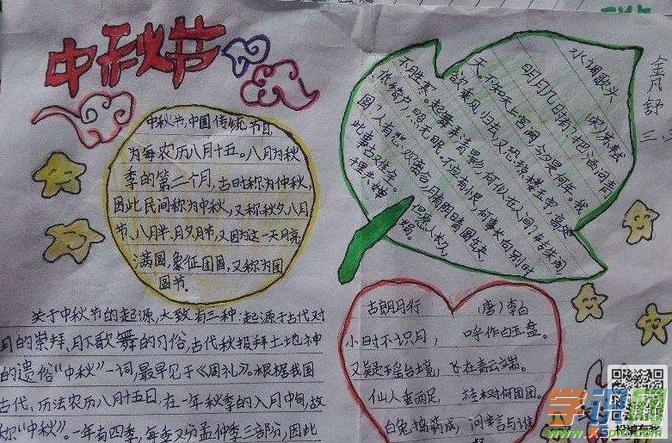 中秋节
中秋节,中国传统节日,
为每农历八月十五。八月为秋
季的第二个月,古时称为仲秋,
因此民间称为中秋,又称秋夕,八月
节,八月半,月夕,月节,又因为这一天月亮
满圆,象征团圆,又称为团
圆节。
关于中秋节的起源,大致有三种:起源于古代对
月的崇拜,月下歌舞的习俗,古代秋报拜土地神
的遗俗“中秋”一词,最早见于《周礼》。根据我国
古代,历法农历八月十五日,在一年秋季的八月中旬,故
称“中秋”。一年有四季,每季又分孟仲季三部分,因此
水调歌头
(宋)苏轼
明月几时有?把酒问青
天。不知天上宫阙,今夕是何年。我
欲乘风归去,又恐琼楼玉宇,高处
不胜寒。起舞弄清影,何似在人间?转朱阁,
低绮户,照无眠。不应有恨,何事长向别时
圆?人有悲欢离合,月有阴晴圆缺,
此事古难全。但愿人长久,
古朗月行
(唐)李白
小时不识月,
呼作白玉盘。
又疑瑶台境,
飞在青云端。
仙人垂两足,
桂树何团团。
白兔捣药成,
问言与谁
金凡钰
三
学识网